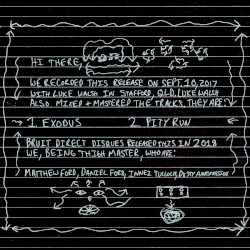 HI THERE,
WE RECORDED THIS RELEASE ON SEPT. 10, 2017
WITH LUKE WALSH IN STAFFORD, QLD. LUKE WALSH
ALSO MIXED + MASTERED THE TRACKS. THEY ARE:
1. EXODUS 2. PITY RUN
BRUIT DIRECT DISQUES RELEASED THIS IN 2018
WE, BEING THIGH MASTER, WHO ARE:
MATTHEW FORD, DANIEL FORD, INNEZ TULLOCH, DUSTY ANASTASSIOU